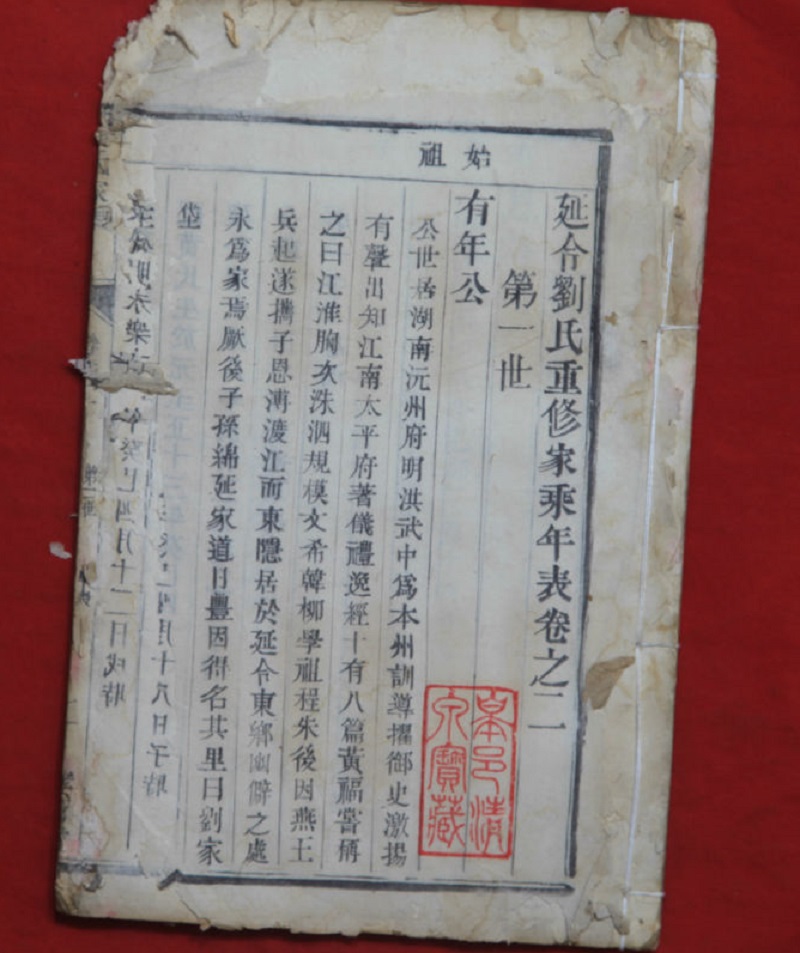 延令劉氏重修家乘年表卷之二
第一世
始祖
有年公
公世居湖南沅州府明洪武中爲本州訓導擢御史激揚
有聲出知江南太平府著儀禮逸經十有八篇黃福嘗稱
之曰江淮胸次洙泗規模文希韓柳學祖程朱後因燕王
兵起遂攜子恩溥渡江而東隱居於延令東鄉幽僻之處
永爲家焉厥後子孫綿延家道日豐因得名其里曰劉家
垈
四月十八日子時
明永樂
年癸巳四月十二日戌時
泉寶藏